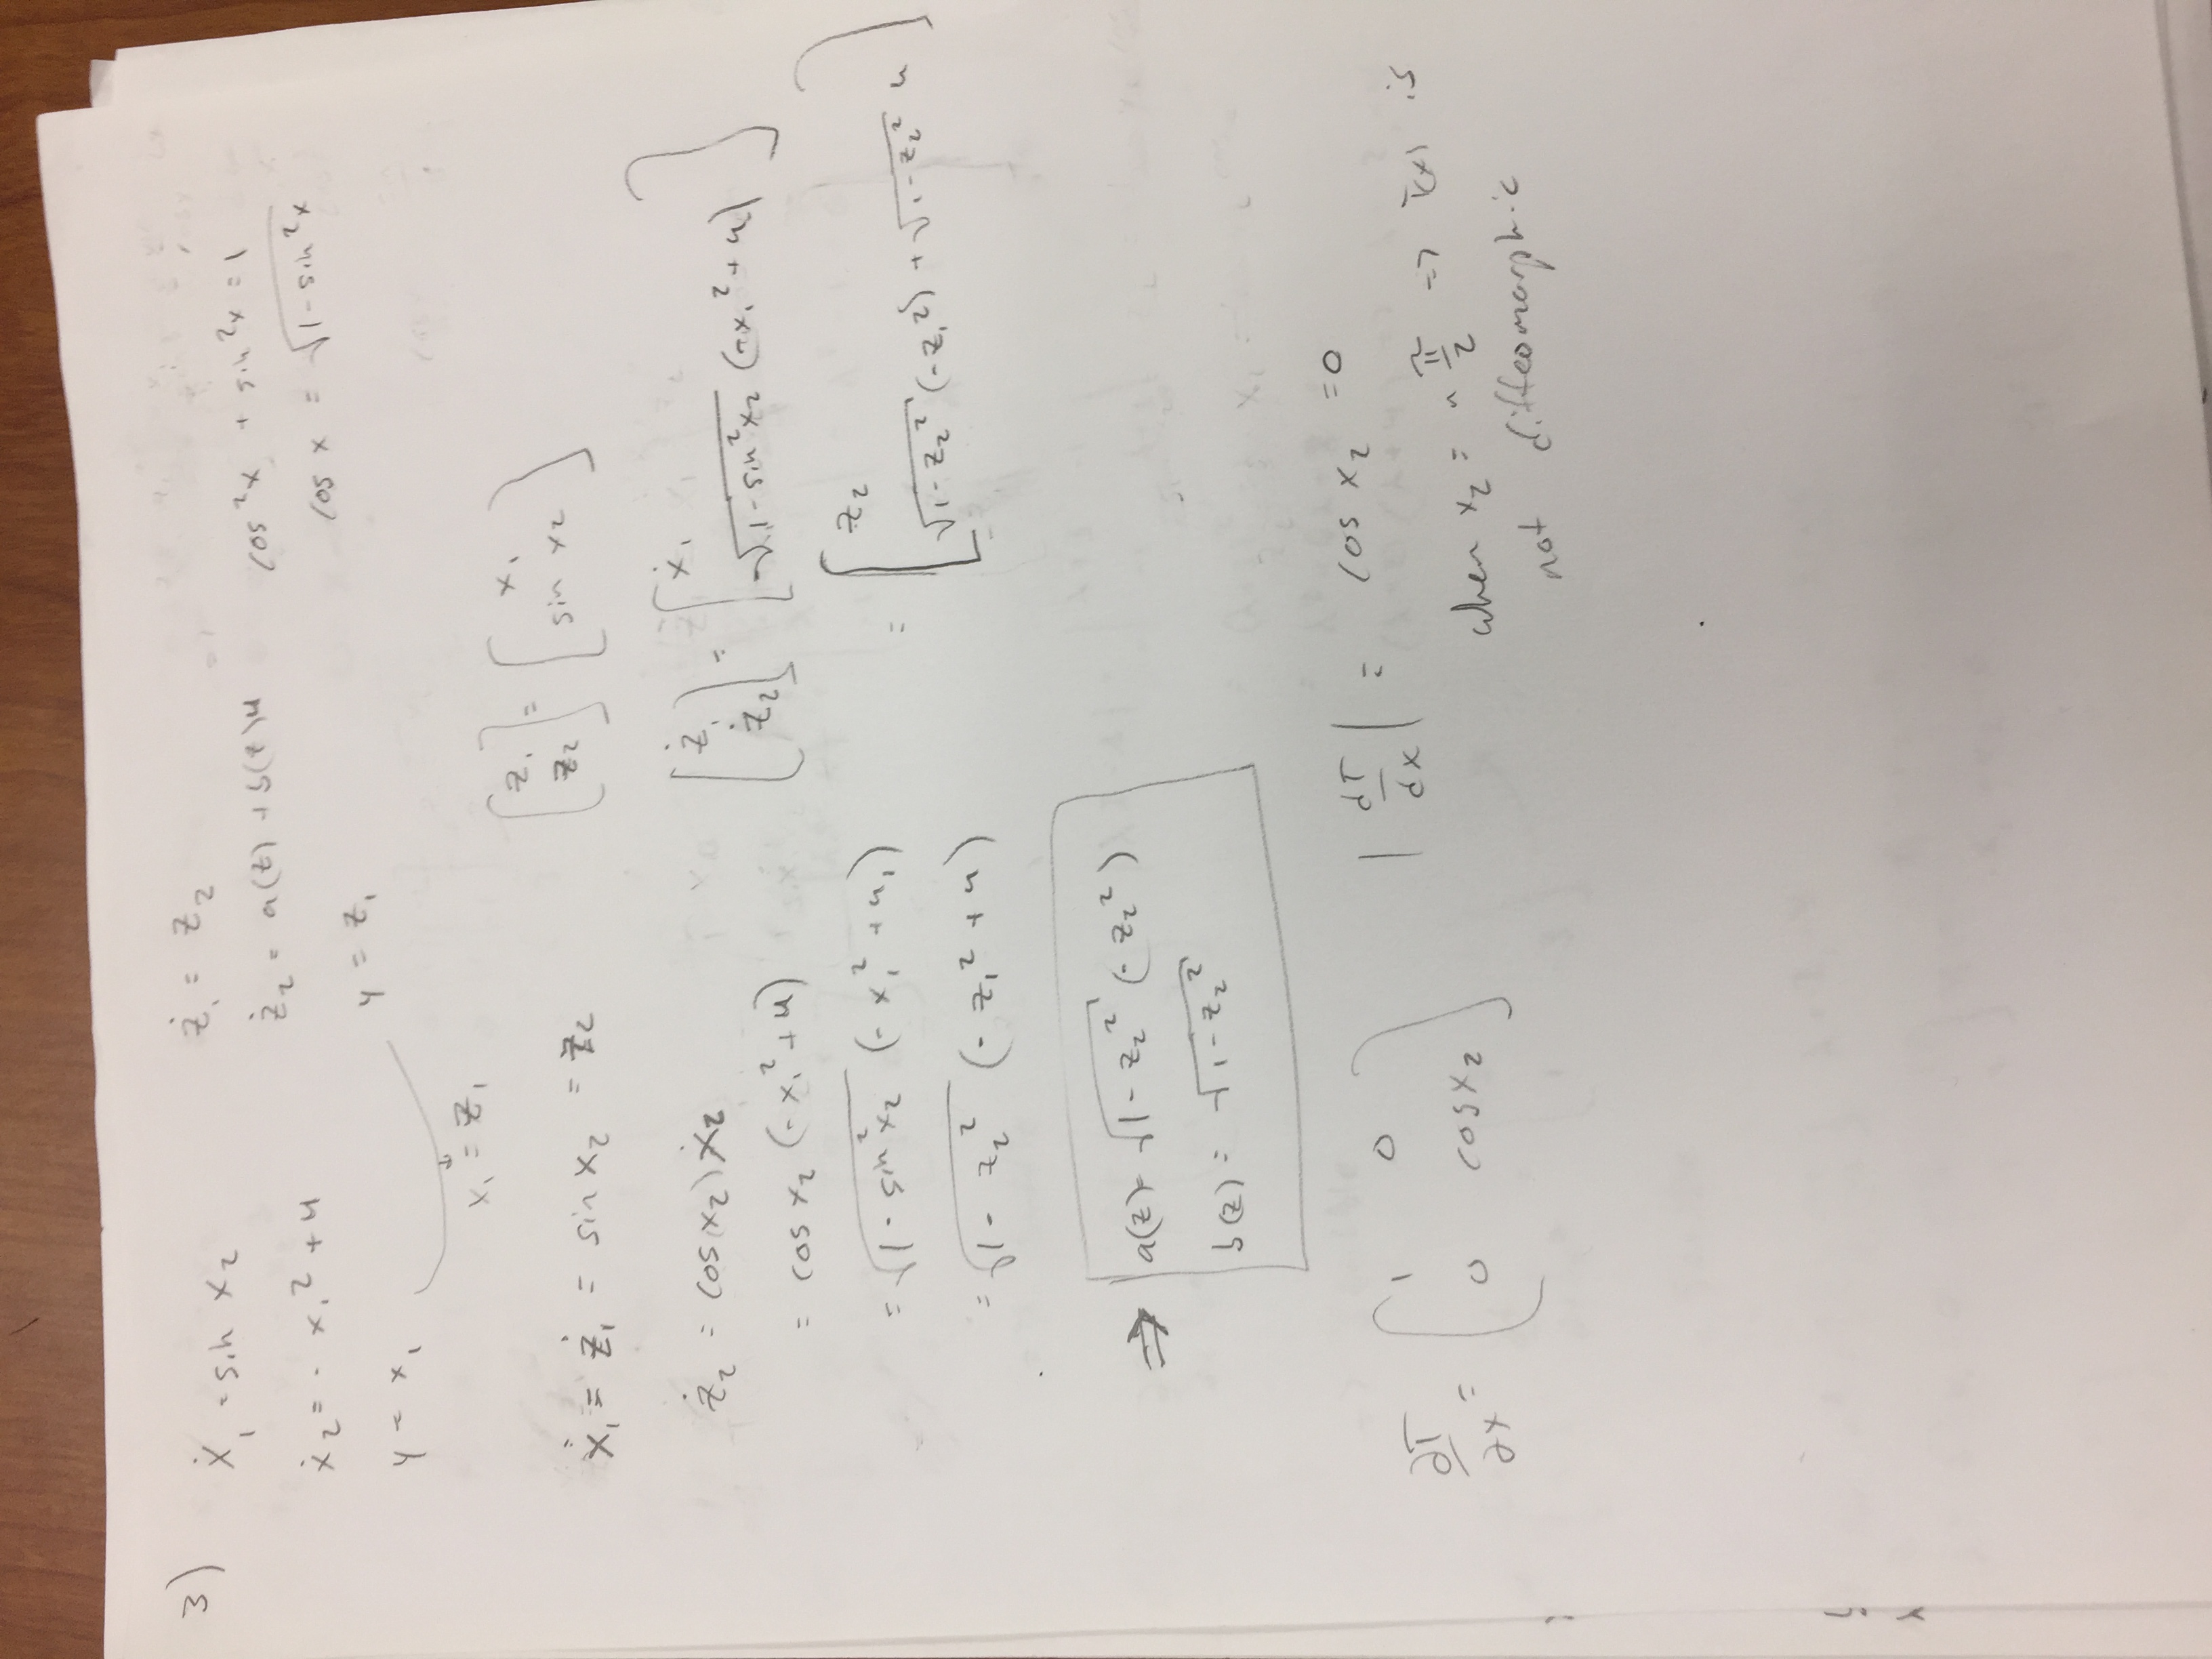 3)
ẋ₁ = sin x₂
ẋ₂ = - x₁² + u
y = x₁
ż₁ = z₂
ż₂ = a(z) + b(z)u
y = z₁
cos²x + sin²x = 1
cos x = √(1-sin²x)
x₁ = z₁
[z₁ z₂] = [x₁ sin x₂]
ẋ₁ = ż₁ = sin x₂ = z₂
ż₂ = cos(x₂) ẋ₂
= cos x₂ (-x₁² + u)
= √(1-sin²x₂) (-x₁² + u₁)
= √(1-z₂²) (-z₁² + u)
[ż₁ ż₂] = [ẋ₁ √(1-sin²x₂) (-x₁² + u)]
= [z₂ √(1-z₂²) (-z₁²) + √(1-z₂²) u]
⇒ a(z) = √(1-z₂²) (-z₂²)
b(z) = √(1-z₂²)
∂T/∂x = (1 0 0 cos x₂)
|dT/dx| = cos x₂ = 0
when x₂ = n π/2 => T(x) is
not diffeomorphic